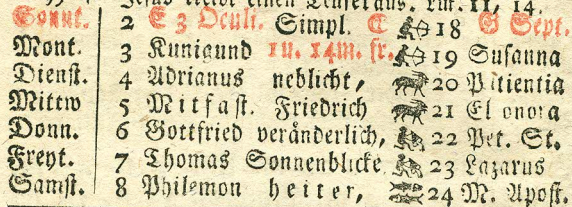 Jesus treibt einen Teufel aus. Luc. 11, 14.
Sonnt. 2 E 3 Oculi. Simpl. C 18 G Sept.
Mont. 3 Kunigund 1u. 14m. fr. 19 Susanna
Dienst. 4 Adrianus neblicht, 20 Patientia
Mittw 5 Mitfast. Friedrich 21 Eleonora
Donn. 6 Gottfried veränderlich, 22 Pet. St.
Freyt. 7 Thomas Sonnenblicke 23 Lazarus
Samst. 8 Philemon heiter, 24 M. Apost.